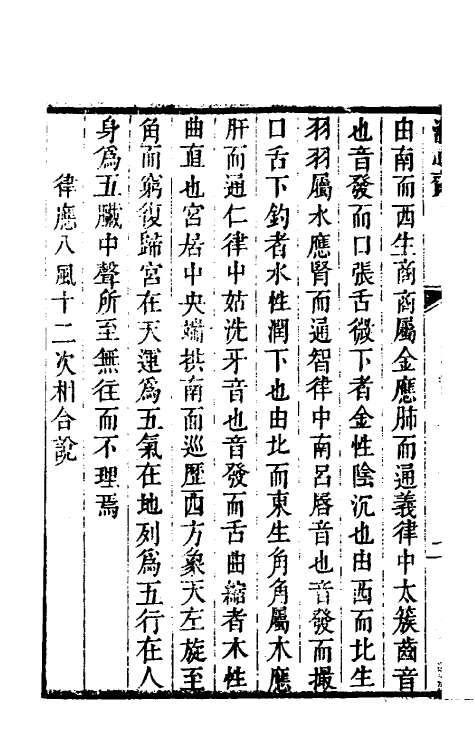 由南而西生商商屬金應肺而通義律中太簇齒音
也音發而口張舌微下者金性陰沉也由西而北生
羽羽屬水應腎而通智律中南呂唇音也音發而撮
口舌下鈞者水性潤下也由北而東生角角屬木應
肝而通仁律中姑洗牙音也音發而舌曲縮者木性
曲直也宮居中央端拱南面巡歷四方象天左旋至
角而窮復歸宮在天運爲五氣在地列爲五行在人
身爲五臟中聲所至無往而不理焉
律應八風十二次相合說